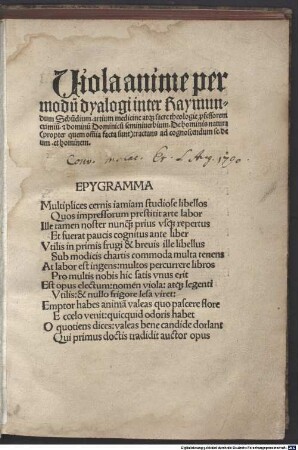 Viola anime per
modũ dyalogi inter Raymun-
dum Sebũdium. artium medicine atqȝ sacre theologie ꝓfessorem
eximiũ. ⁊ dominũ Dominicũ seminiuerbium. De hominis natura
(propter quem omnia facta sunt) tractans ad cognoscendum se. de-
um. et hominem.
EPYGRAMMA
Multiplices cernis iamiam studiose libellos
Quos impressorum prestitit arte labor
Ille tamen noster nuncꝗ prius vsqȝ repertus
Et fuerat paucis cognitus ante liber
Vtilis in primis frugi & breuis ille libellus
Sub modicis chartis commoda multa tenens
At labor est ingens: multos percurrere libros
Pro multis nobis hic satis vnus erit
Est opus electum: nomen viola: atqȝ legenti
Vtilis: & nullo frigore lesa viret:
Emptor habes animã valeas quo pascere flore
E celo venit: quicquid odoris habet
O quotiens dices: valeas bene candide dorlant
Qui primus doctis tradidit auctor opus